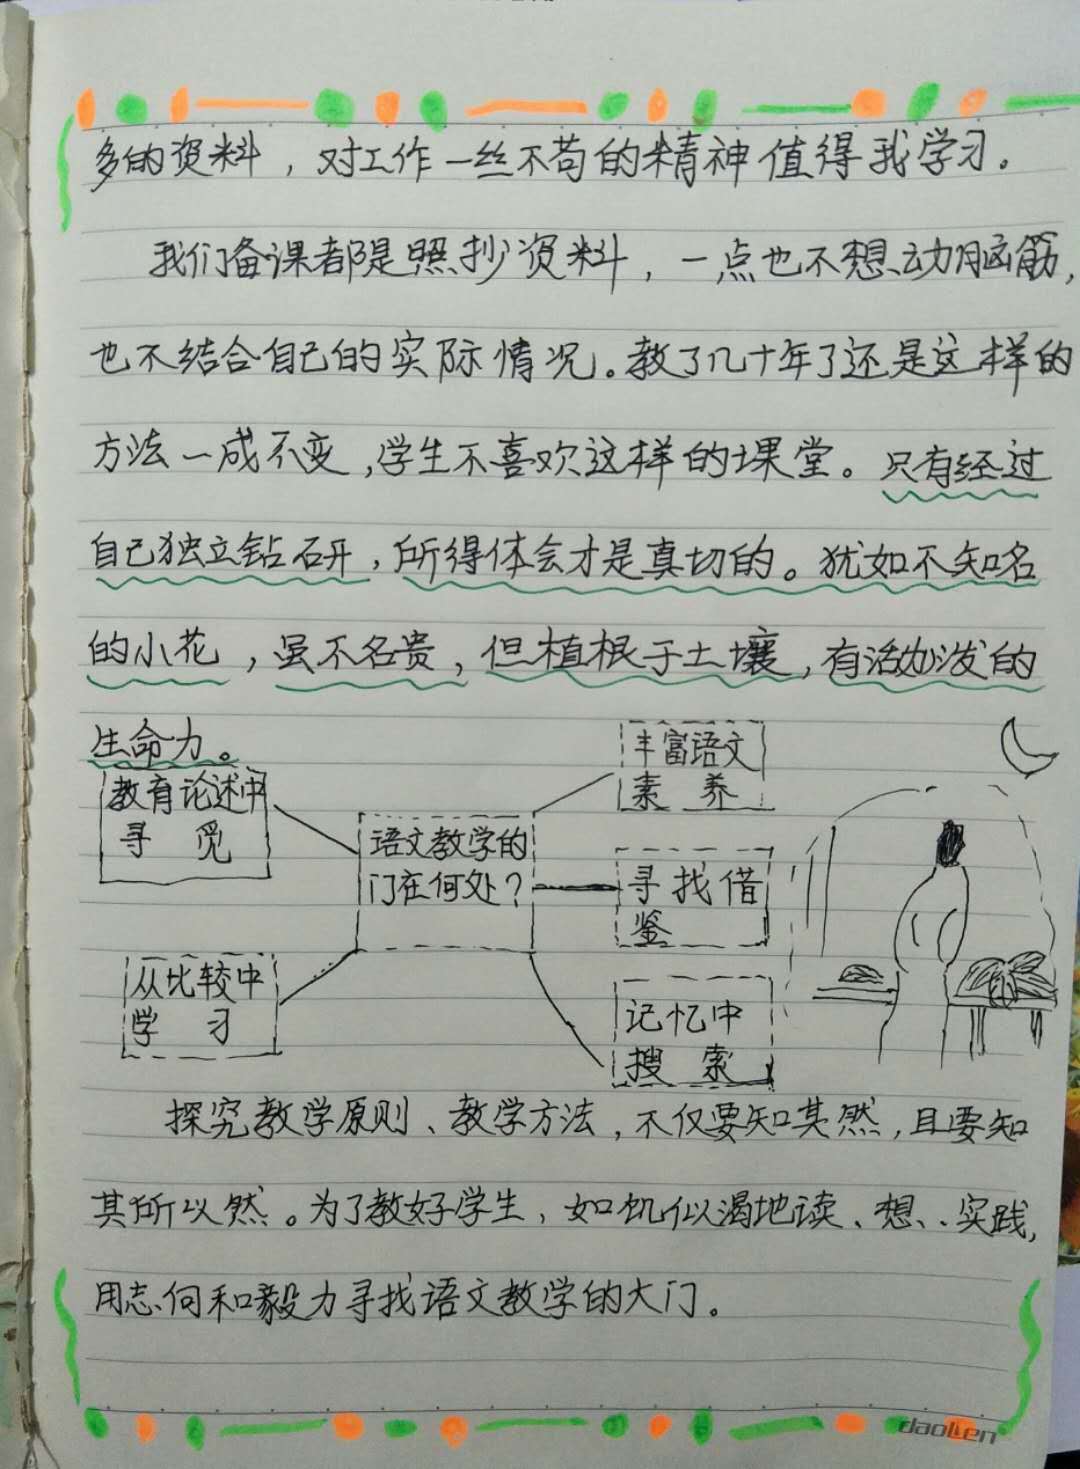 多的资料，对工作一丝不苟的精神值得我学习。
我们备课都是照抄资料，一点也不想动脑筋，
也不结合自己的实际情况。教了几十年了还是这样的
方法一成不变，学生不喜欢这样的课堂。只有经过
自己独立钻研，所得体会才是真切的。犹如不知名
的小花，虽不名贵，但植根于土壤，有活泼泼的
生命力。
教育论述中
寻 觅
从比较中
学 习
语文教学的
门在何处？
丰富语文
素 养
寻找借
鉴
记忆中
搜 索
探究教学原则、教学方法，不仅要知其然，且要知
其所以然。为了教好学生，如饥似渴地读、想、、实践，
用志向和毅力寻找语文教学的大门。
daolien